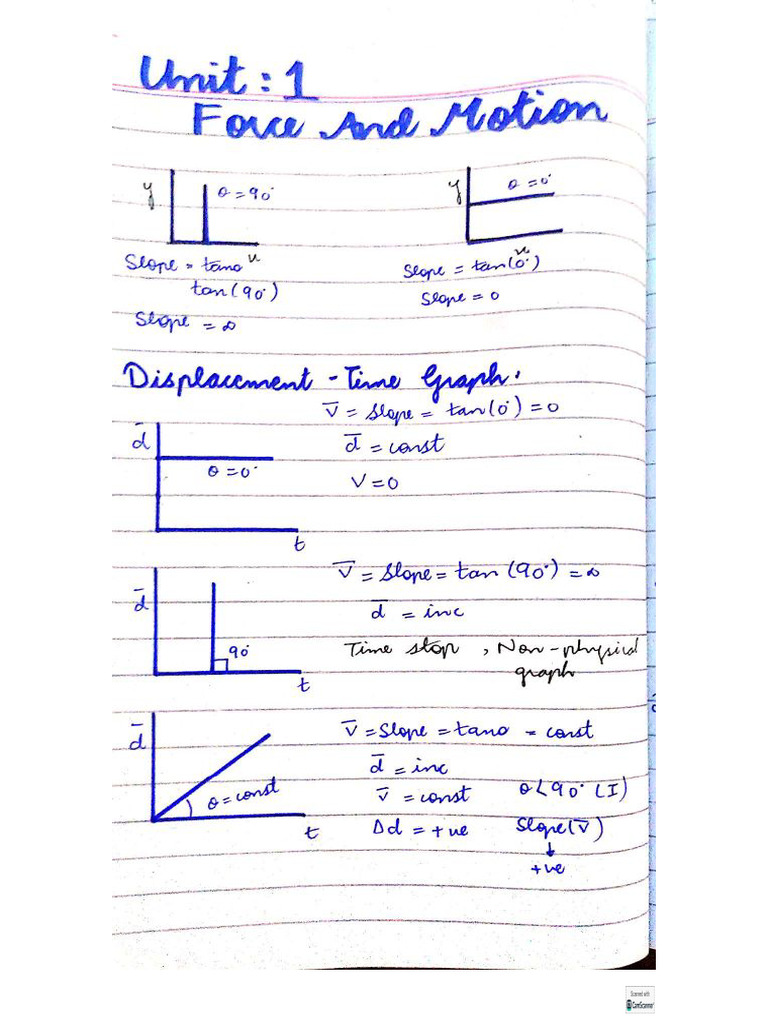 Unit : 1
Force And Motion
y θ = 90°
x
Slope = tanθ
tan(90°)
Slope = ∞
y θ = 0°
x
Slope = tan(0°)
Slope = 0
Displacement - Time Graph.
d̅ θ = 0°
t
V̅ = Slope = tan(0°) = 0
d̅ = const
V = 0
d̅ 90°
t
V̅ = Slope = tan(90°) = ∞
d̅ = inc
Time stop , Non-physical
graph
d̅ θ = const
t
V̅ = Slope = tanθ = const
d̅ = inc
V̅ = const θ < 90° (I)
Δd = +ve Slope(V̅)
↓
+ve
Scanned with
CamScanner